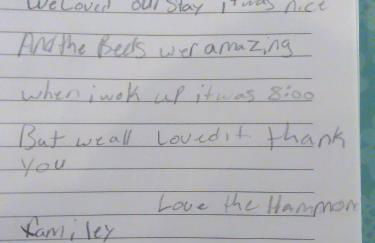 We Loved our stay it was nice
And the Beds wer amazing
when i wok up it was 8:00
But we all Loved it thank
you
Love the Hammon
familey